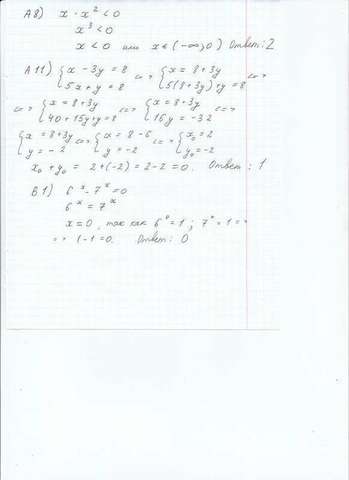 А8) x · x² < 0
x³ < 0
x < 0 или x ∈ (-∞; 0) Ответ: 2
А11) { x - 3y = 8 <=> { x = 8 + 3y <=>
{ 5x + y = 8 { 5(8 + 3y) + y = 8
<=> { x = 8 + 3y <=> { x = 8 - 3y <=>
{ 40 + 15y + y = 8 { 16y = -32
{ x = 8 + 3y <=> { x = 8 - 6 <=> { x₀ = 2
{ y = -2 { y = -2 { y₀ = -2
x₀ + y₀ = 2 + (-2) = 2 - 2 = 0. Ответ: 1
В.1) 6ˣ - 7ˣ = 0
6ˣ = 7ˣ
x = 0, так как 6⁰ = 1; 7⁰ = 1 =>
=> 1 - 1 = 0. Ответ: 0